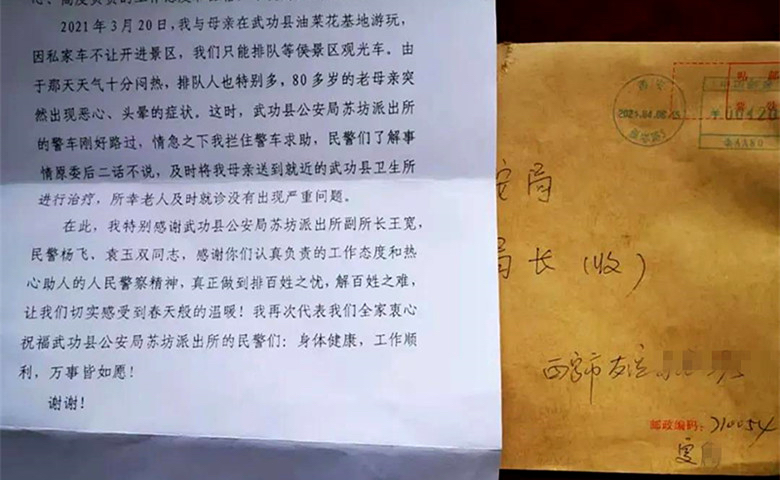 2021年3月20日，我与母亲在武功县油菜花基地游玩，
因私家车不让开进景区，我们只能排队等侯景区观光车。由
于那天天气十分闷热，排队人也特别多，80多岁的老母亲突
然出现恶心、头晕的症状。这时，武功县公安局苏坊派出所
的警车刚好路过，情急之下我拦住警车求助，民警们了解事
情原委后二话不说，及时将我母亲送到就近的武功县卫生所
进行治疗，所幸老人及时就诊没有出现严重问题。
在此，我特别感谢武功县公安局苏坊派出所副所长王宽，
民警杨飞、袁玉双同志，感谢你们认真负责的工作态度和热
心助人的人民警察精神，真正做到排百姓之忧，解百姓之难，
让我们切实感受到春天般的温暖！我再次代表我们全家衷心
祝福武功县公安局苏坊派出所的民警们：身体健康，工作顺
利，万事皆如愿！
谢谢！
西安
2021.04.08
安局
局长（收）
西安市友谊
邮政编码：710054